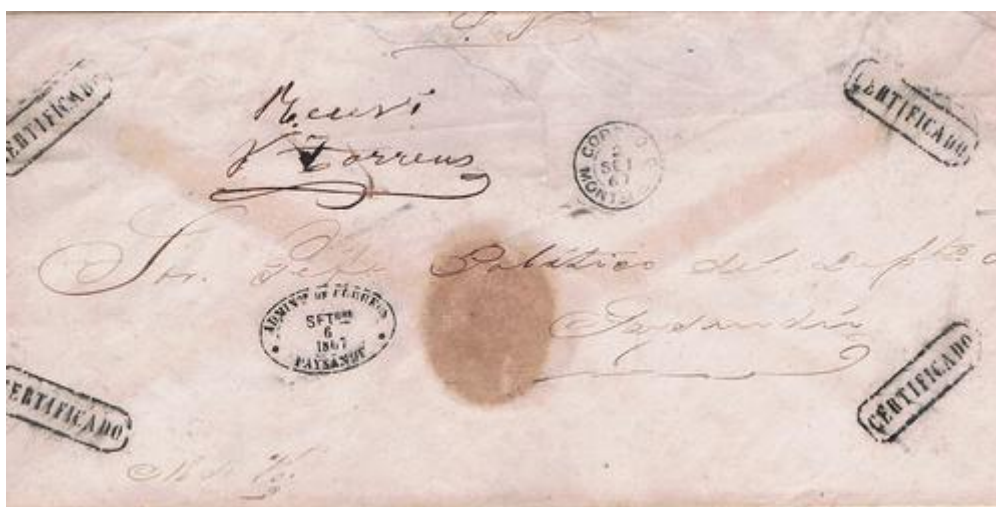 S. N.
CERTIFICADO
CERTIFICADO
Recivi
Torrens
CORREO
2
SET
67
MONTE
Sor. Jefe Politico del
Paysandú
ADMINon DE CORREOS
SETBRE
6
1867
PAYSANDU
CERTIFICADO
CERTIFICADO